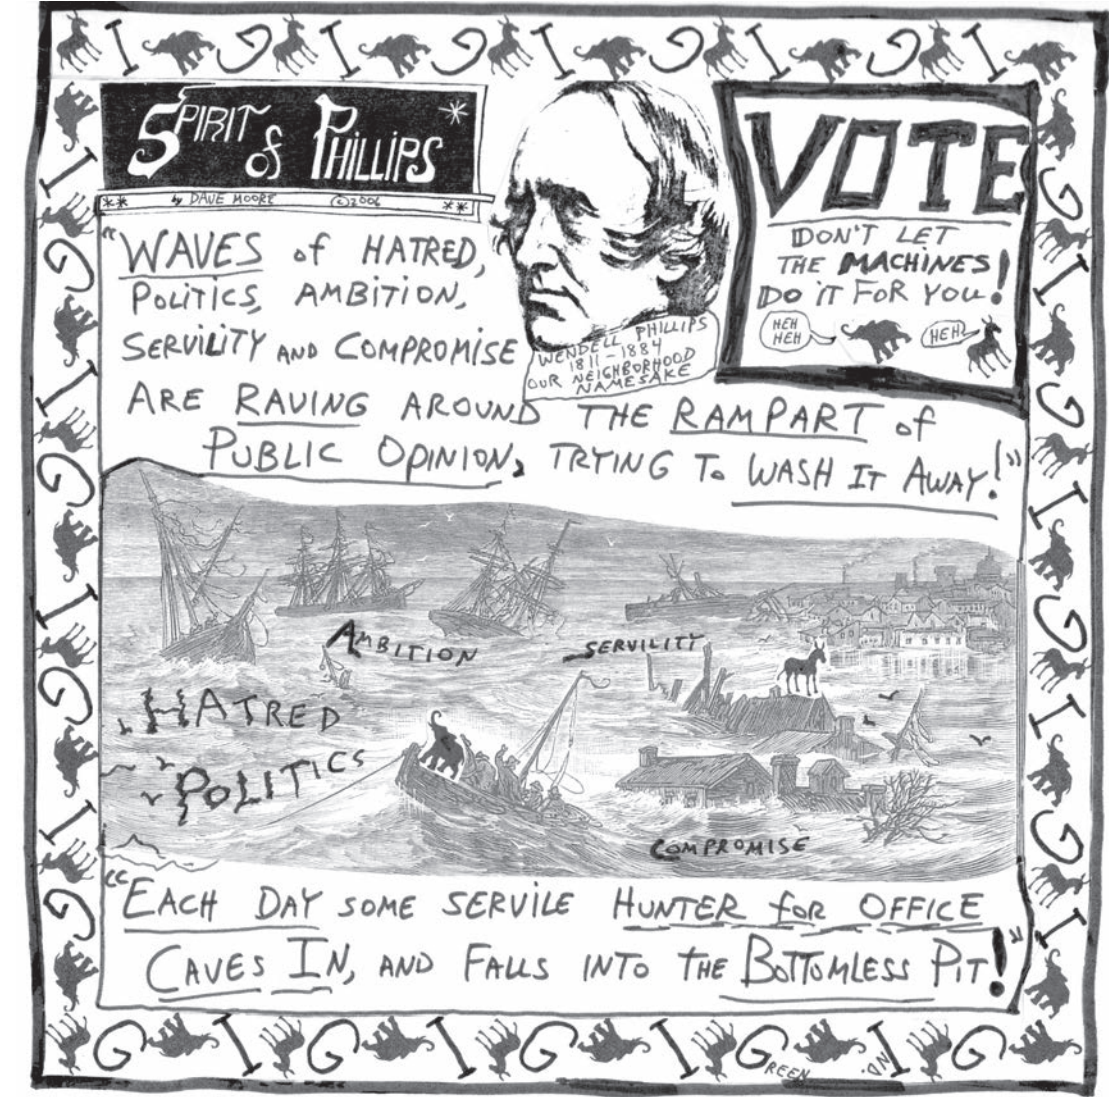 I G I G I G I G I
SPIRIT of PHILLIPS *
** by DAVE MOORE ©2006 **
VOTE
DON'T LET
THE MACHINES
DO IT FOR YOU!
HEH
HEH
HEH
WENDELL PHILLIPS
1811-1884
OUR NEIGHBORHOOD
NAMESAKE
"WAVES of HATRED,
POLITICS, AMBITION,
SERVILITY AND COMPROMISE
ARE RAVING AROUND THE RAMPART of
PUBLIC OPINION, TRYING TO WASH IT AWAY!"
AMBITION
SERVILITY
HATRED
POLITICS
COMPROMISE
"EACH DAY SOME SERVILE HUNTER for OFFICE
CAVES IN, AND FALLS INTO THE BOTTOMLESS PIT!"
G I G I G I GREEN IND. G